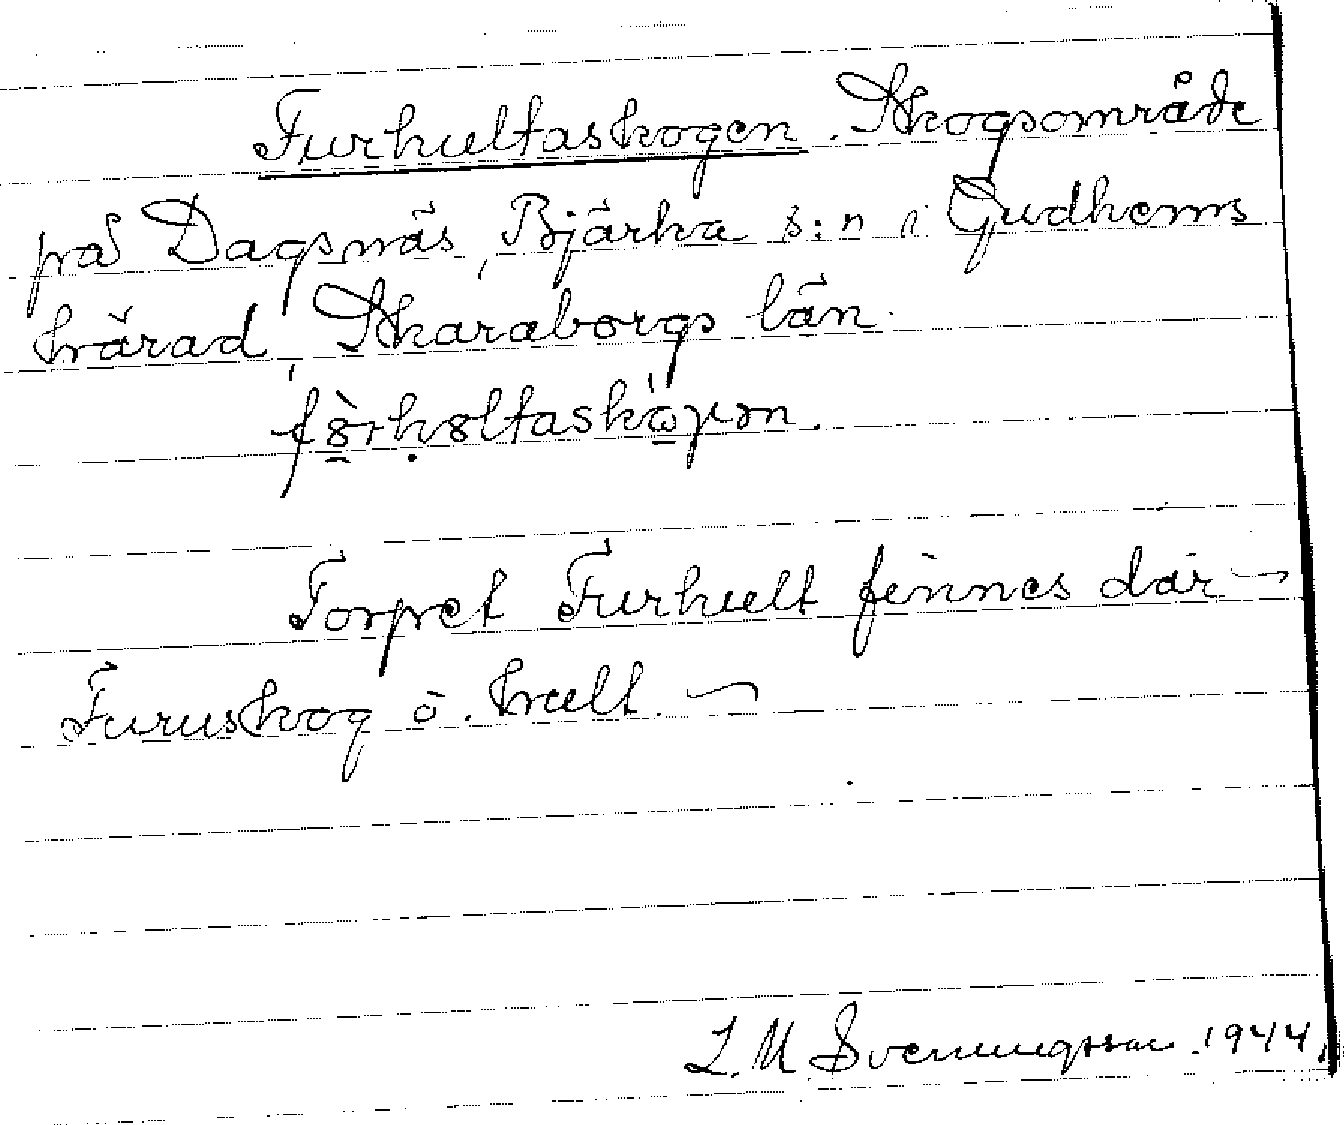 Furhultaskogen. Skogsområde
på Dagsnäs, Bjärka s:n i Gudhems
härad, Skaraborgs län.
Torpet Furhult finnes där –
Furuskog o. hult. –
L. M. Svenungsson 1944.